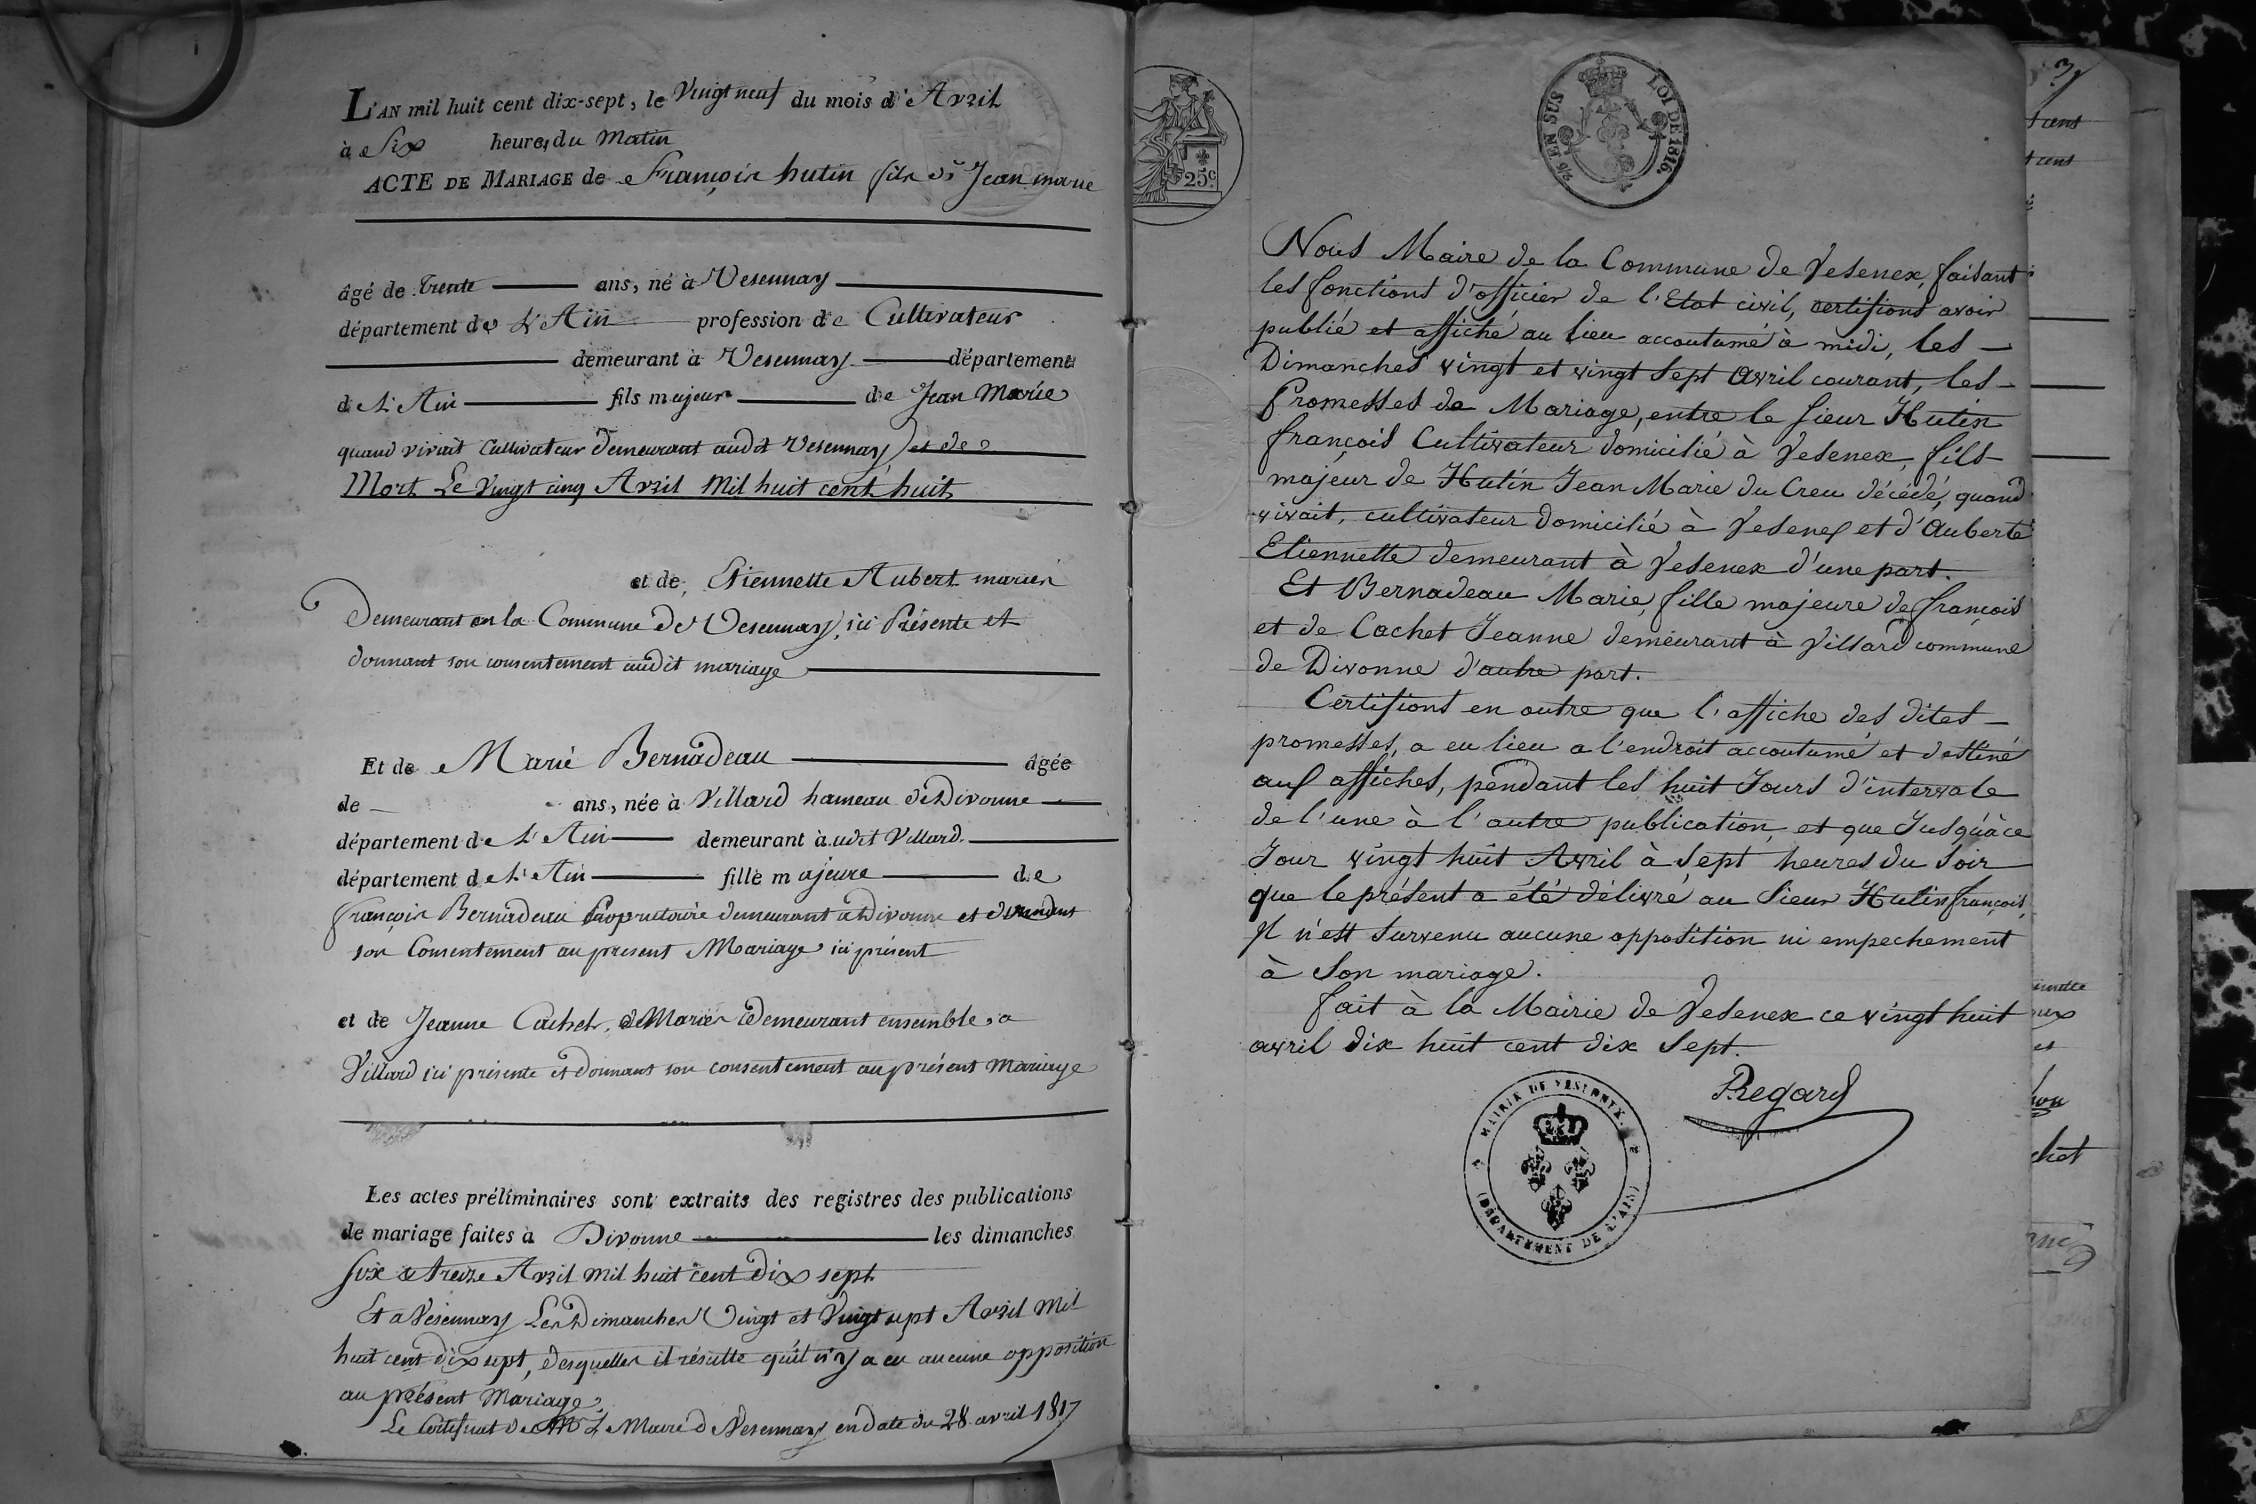 L'AN mil huit cent dix-sept, le Vingt neuf du mois d'Avril
à Six heures du Matin
ACTE DE MARIAGE de François hutin fils de Jean marie
âgé de trente ans, né à Vesennay
département de L'Ain profession de Cultivateur
demeurant à Vesennay département
de L'Ain fils majeur de Jean Marie
quand vivait Cultivateur demeurant audit Vesennay et de
Mort Le Vingt cinq Avril Mil huit cent huit
et de Etiennette Aubert mariés
Demeurant en la Commune de Vesennay, ici Présente et
donnant son consentement audit mariage
Et de Marie Bernadeau âgée
de ans, née à Villard hameau de Divonne
département de L'Ain demeurant audit Villard
département de L'Ain fille majeure de
françois Bernadeau Propriétaire demeurant à Divonne et
son Consentement au present Mariage ici présent
et de Jeanne Cachet, Mariés Demeurant ensemble, a
Villard ici présente et donnant son consentement au présent Mariage
Les actes préliminaires sont extraits des registres des publications
de mariage faites à Divonne les dimanches
six & treize Avril mil huit cent dix sept
Et a Vesennay Les Dimanches Vingt et Vingt sept Avril Mil
huit cent dix sept, desquelles il résulte qu'il n'y a eu aucune opposition
au présent Mariage
Le Certificat de Mr Le Maire de Vesennay en date du 28 avril 1817
25c
LOI DE 1816.
EN SUS
Nous Maire de la Commune de Vesenex, faisant
les fonctions d'officier de l'Etat civil, certifions avoir
publié et affiché au lieu accoutumé à midi, les
Dimanches vingt et vingt sept Avril courant, les
Promesses de Mariage, entre le sieur Hutin
françois Cultivateur domicilié à Vesenex, fils
majeur de Hutin Jean Marie du Creu décédé, quand
vivait, cultivateur domicilié à Vesenex et d'Auberte
Etiennette demeurant à Vesenex d'une part.
Et Bernadeau Marie, fille majeure de françois
et de Cachet Jeanne demeurant à Villard commune
de Divonne d'autre part.
Certifions en outre que l'affiche des dites
promesses, a eu lieu a l'endroit accoutumé et destiné
aux affiches, pendant les huit Jours d'intervale
de l'une à l'autre publication, et que Jusqu'à ce
Jour vingt huit Avril à sept heures du soir
que le présent a été délivré au sieur Hutin françois,
Il n'est survenu aucune opposition ni empechement
à son mariage.
fait à la Mairie de Vesenex ce vingt huit
avril dix huit cent dix sept.
Regard
MAIRIE DE VESENEX.
(DÉPARTEMENT DE L'AIN)